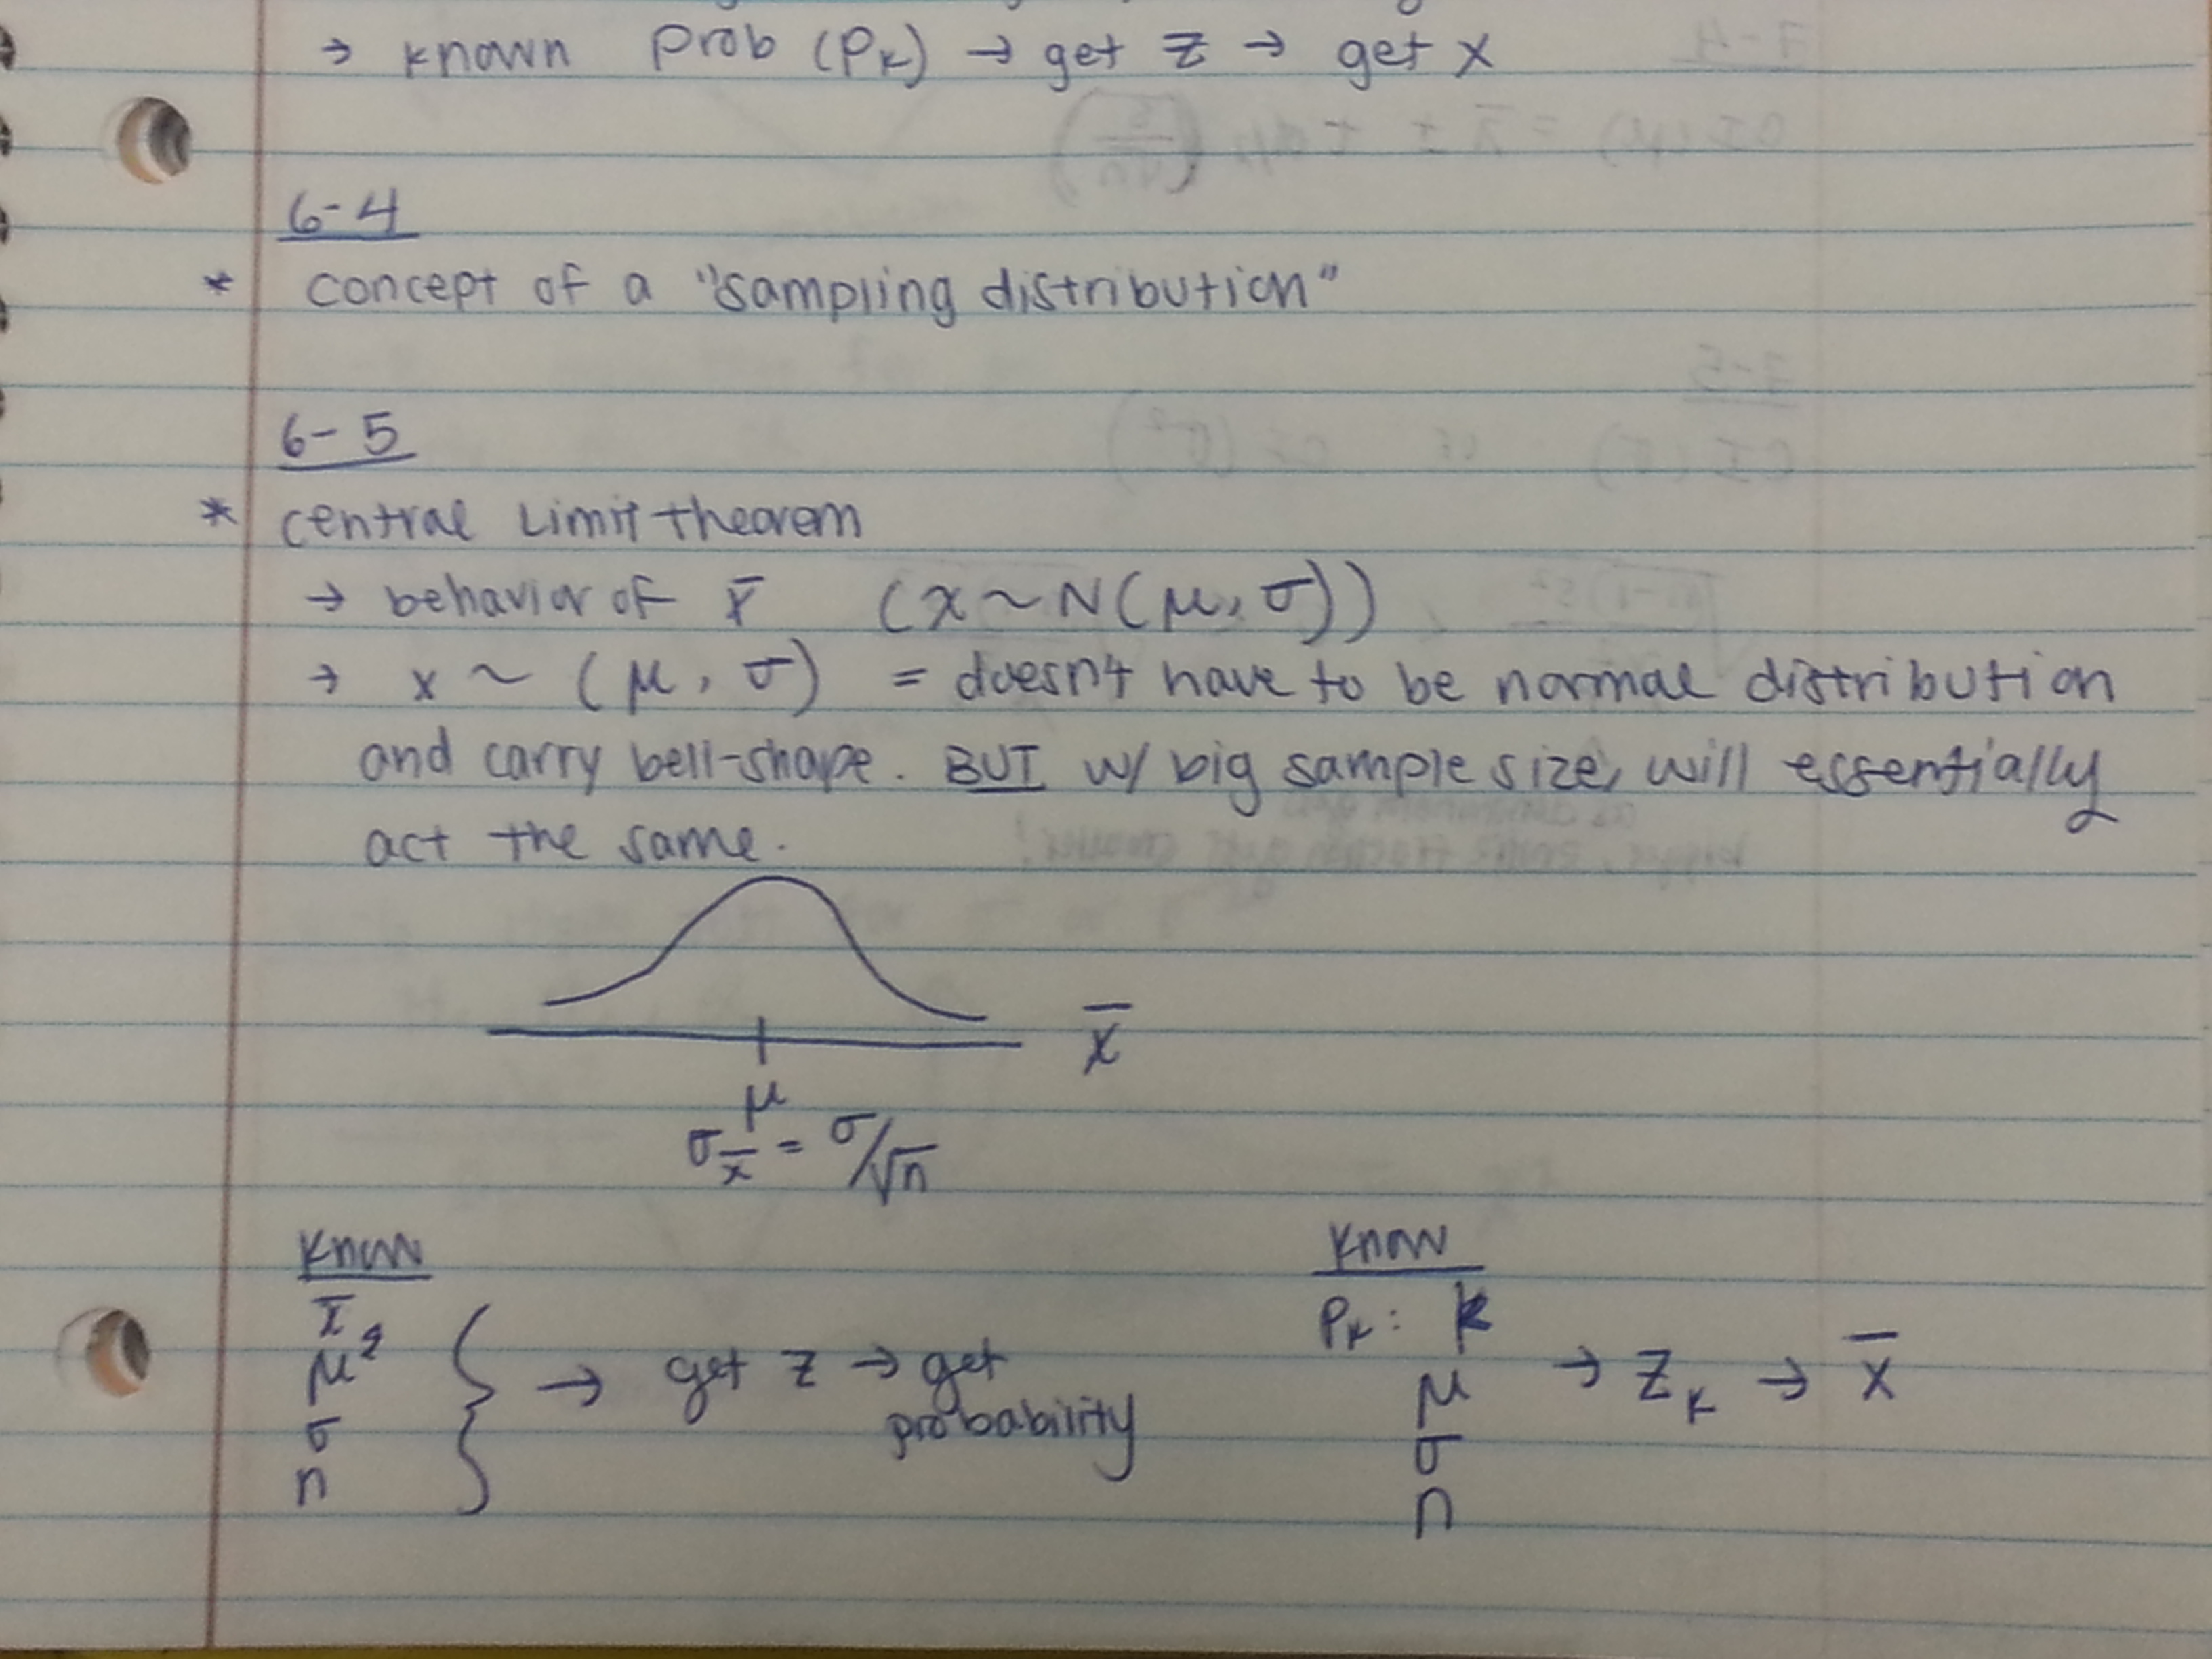 → known prob (Pk) → get z → get x
6-4
* concept of a "sampling distribution"
6-5
* central Limit theorem
→ behavior of x̄ (x ~ N(μ, σ))
→ x ~ (μ, σ) = doesn't have to be normal distribution
and carry bell-shape. BUT w/ big sample size, will essentially
act the same.
x̄
μ
σx̄ = σ/√n
know
x̄
μ
σ
n
→ get z → get
probability
know
Pk: k
μ
σ
n
→ zk → x̄